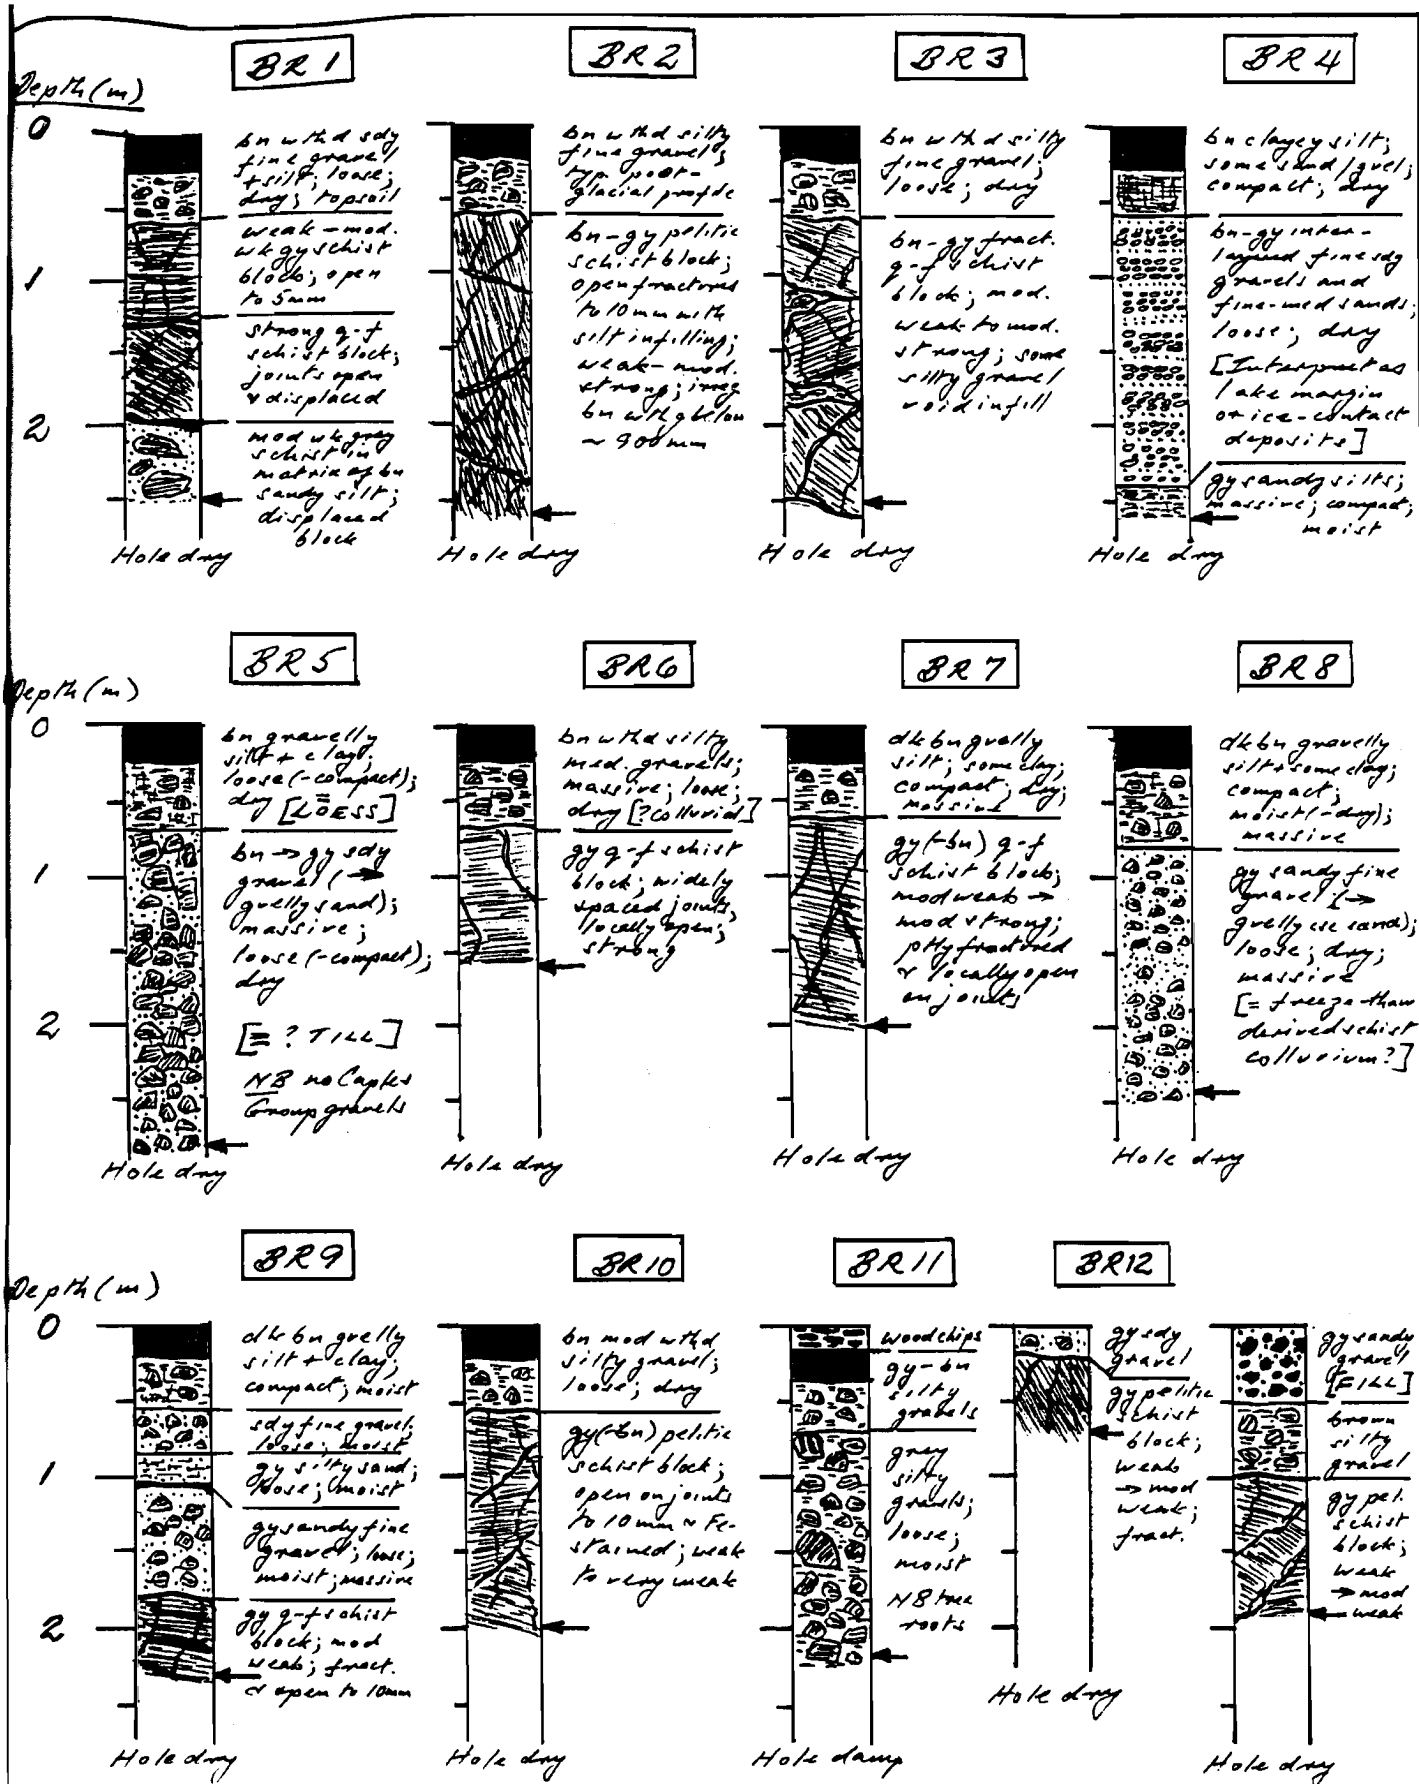 BR 1
BR 2
BR 3
BR 4
Depth (m)
0
1
2
bn wthd sdy
fine gravel
+ silt; loose;
dry; topsoil
weak - mod.
wk gy schist
block; open
to 5mm
strong q-f
schist block;
joints open
& displaced
mod wk grey
schist in
matrix of bn
sandy silt;
displaced
block
Hole dry
bn wthd silty
fine gravel;
typ. post-
glacial profile
bn-gy pelitic
schist block;
open fractures
to 10mm with
silt infilling;
weak - mod.
strong; irreg
bn wthg below
~ 900mm
Hole dry
bn wthd silty
fine gravel;
loose; dry
bn-gy fract.
q-f schist
block; mod.
weak to mod.
strong; some
silty gravel
void infill
Hole dry
bn clayey silt;
some sand/gvel;
compact; dry
bn-gy inter-
layered fine sdy
gravels and
fine-med sands;
loose; dry
[Interpret as
lake margin
or ice-contact
deposits]
gy sandy silts;
massive; compact;
moist
Hole dry
BR 5
BR 6
BR 7
BR 8
Depth (m)
0
1
2
bn gravelly
silt + clay;
loose (-compact);
dry [LOESS]
bn → gy sdy
gravel (→
gvelly sand);
massive;
loose (-compact);
dry
[≡ ? TILL]
NB no Caples
Group gravels
Hole dry
bn wthd silty
med. gravels;
massive; loose;
dry [? colluvial]
gy q-f schist
block; widely
spaced joints,
locally open;
strong
Hole dry
dk bn gvelly
silt; some clay;
compact; dry;
massive
gy (-bn) q-f
schist block;
mod weak →
mod strong;
ptly fractured
& locally open
on joints
Hole dry
dk bn gravelly
silt + some clay;
compact;
moist (-dry);
massive
gy sandy fine
gravel (→
gvelly cse sand);
loose; dry;
massive
[= freeze-thaw
derived schist
colluvium?]
Hole dry
BR 9
BR 10
BR 11
BR12
Depth (m)
0
1
2
dk bn gvelly
silt + clay;
compact; moist
sdy fine gravel;
loose; moist
gy silty sand;
loose; moist
gy sandy fine
gravel; loose;
moist; massive
gy q-f schist
block; mod
weak; fract.
& open to 10mm
Hole dry
bn mod wthd
silty gravel;
loose; dry
gy (-bn) pelitic
schist block;
open on joints
to 10mm & Fe-
stained; weak
to very weak
Hole dry
woodchips
gy-bn
silty
gravels
grey
silty
gravels;
loose;
moist
NB tree
roots
Hole damp
gy sdy
gravel
gy pelitic
schist
block;
weak
→ mod
weak;
fract.
Hole dry
gy sandy
gravel
[FILL]
brown
silty
gravel
gy pel.
schist
block;
weak
→ mod
weak
Hole dry